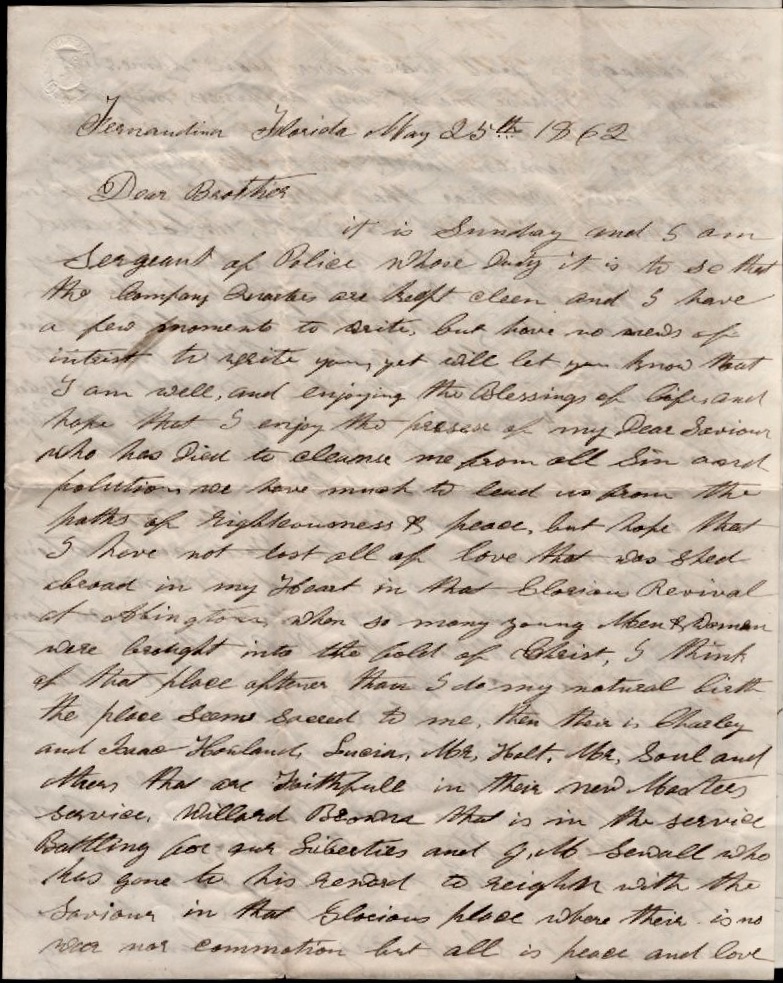 Fernandina Florida May 25th 1862
Dear Brother
it is Sunday and I am
Sergeant of Police whose Duty it is to se that
the Company Quarters are kept cleen and I have
a few moments to write, but have no news of
intrest to write you, yet will let you know that
I am well, and enjoying the Blessings of life, and
hope that I enjoy the presece of my Dear Saviour
who has Died to cleanse me from all Sin and
polution, we have much to lead us from the
paths of righteousness & peace, but hope that
I have not lost all of love that was Shed
abroad in my Heart in that Glorious Revival
at Abington, when so many young Men & Women
were brought into the fold of Christ, I think
of that place oftener than I do my natural birth
the place Seems Sacred to me, then their is Charley
and Isaac Howland, Lucia, Mr, Holt, Mr, Soul and
others that are Faithfull in their new Masters
service. Willard Brown that is in the service
Battling for our Liberties and J, M Sewall who
has gone to his reward to reighn with the
Saviour in that Glorious place where their is no
war nor commotion but all is peace and love